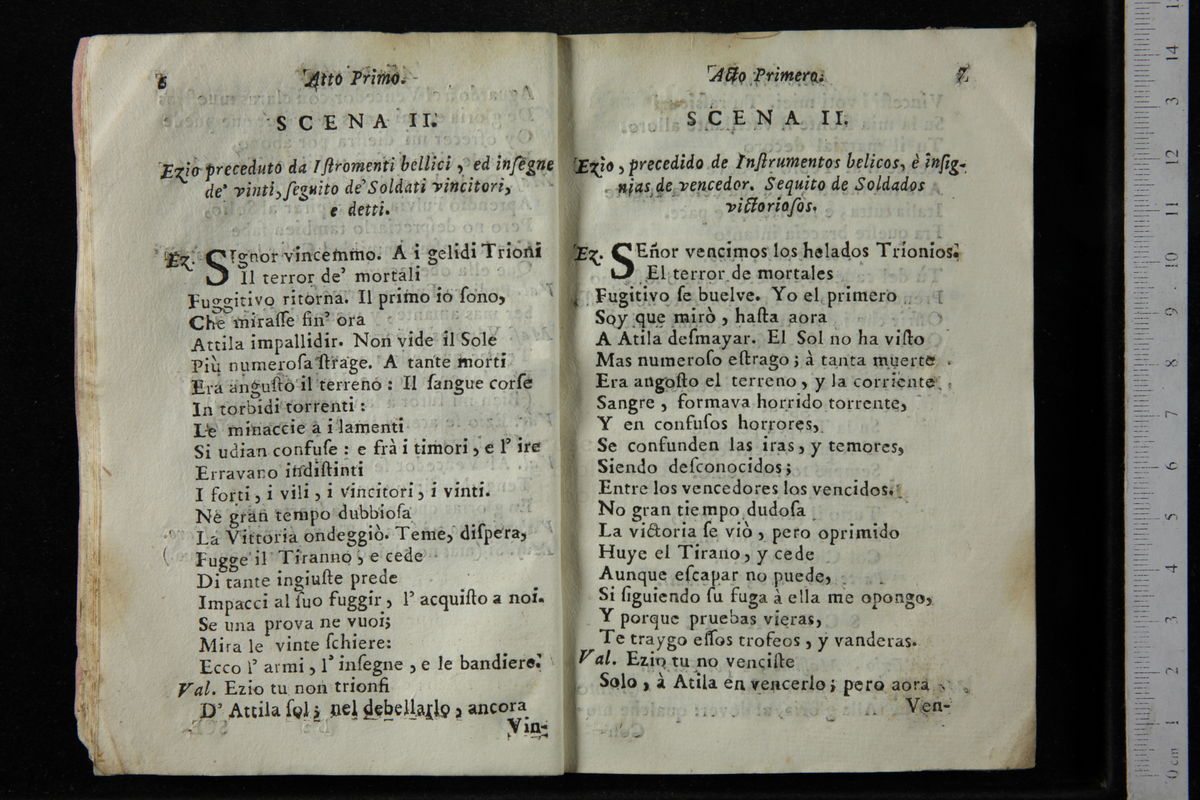 6 Atto Primo.
SCENA II.
Ezio preceduto da Iſtromenti bellici, ed inſegne
de' vinti, ſeguito de' Soldati vincitori,
e detti.
Ez. SIgnor vincemmo. A i gelidi Trioni
Il terror de' mortali
Fuggitivo ritorna. Il primo io ſono,
Che miraſſe fin' ora
Attila impallidir. Non vide il Sole
Più numeroſa ſtrage. A tante morti
Era anguſto il terreno: Il ſangue corſe
In torbidi torrenti:
Le minaccie a i lamenti
Si udian confuſe: e frà i timori, e l' ire
Erravano indiſtinti
I forti, i vili, i vincitori, i vinti.
Nè gran tempo dubbioſa
La Vittoria ondeggiò. Teme, diſpera,
Fugge il Tiranno, e cede
Di tante ingiuſte prede
Impacci al ſuo fuggir, l' acquiſto a noi.
Se una prova ne vuoi;
Mira le vinte ſchiere:
Ecco l' armi, l' inſegne, e le bandiere.
Val. Ezio tu non trionfi
D' Attila ſol; nel debellarlo, ancora
Vin-
Acto Primero. 7
SCENA II.
Ezio, precedido de Inſtrumentos belicos, è inſig-
nias de vencedor. Sequito de Soldados
victorioſos.
Ez. SEñor vencimos los helados Trionios.
El terror de mortales
Fugitivo ſe buelve. Yo el primero
Soy que mirò, haſta aora
A Atila deſmayar. El Sol no ha viſto
Mas numeroſo eſtrago; à tanta muerte
Era angoſto el terreno, y la corriente
Sangre, formava horrido torrente,
Y en confuſos horrores,
Se confunden las iras, y temores,
Siendo deſconocidos;
Entre los vencedores los vencidos.
No gran tiempo dudoſa
La victoria ſe viò, pero oprimido
Huye el Tirano, y cede
Aunque eſcapar no puede,
Si ſiguiendo ſu fuga à ella me opongo,
Y porque pruebas vieras,
Te traygo eſſos trofeos, y vanderas.
Val. Ezio tu no venciſte
Solo, à Atila en vencerlo; pero aora
Ven-